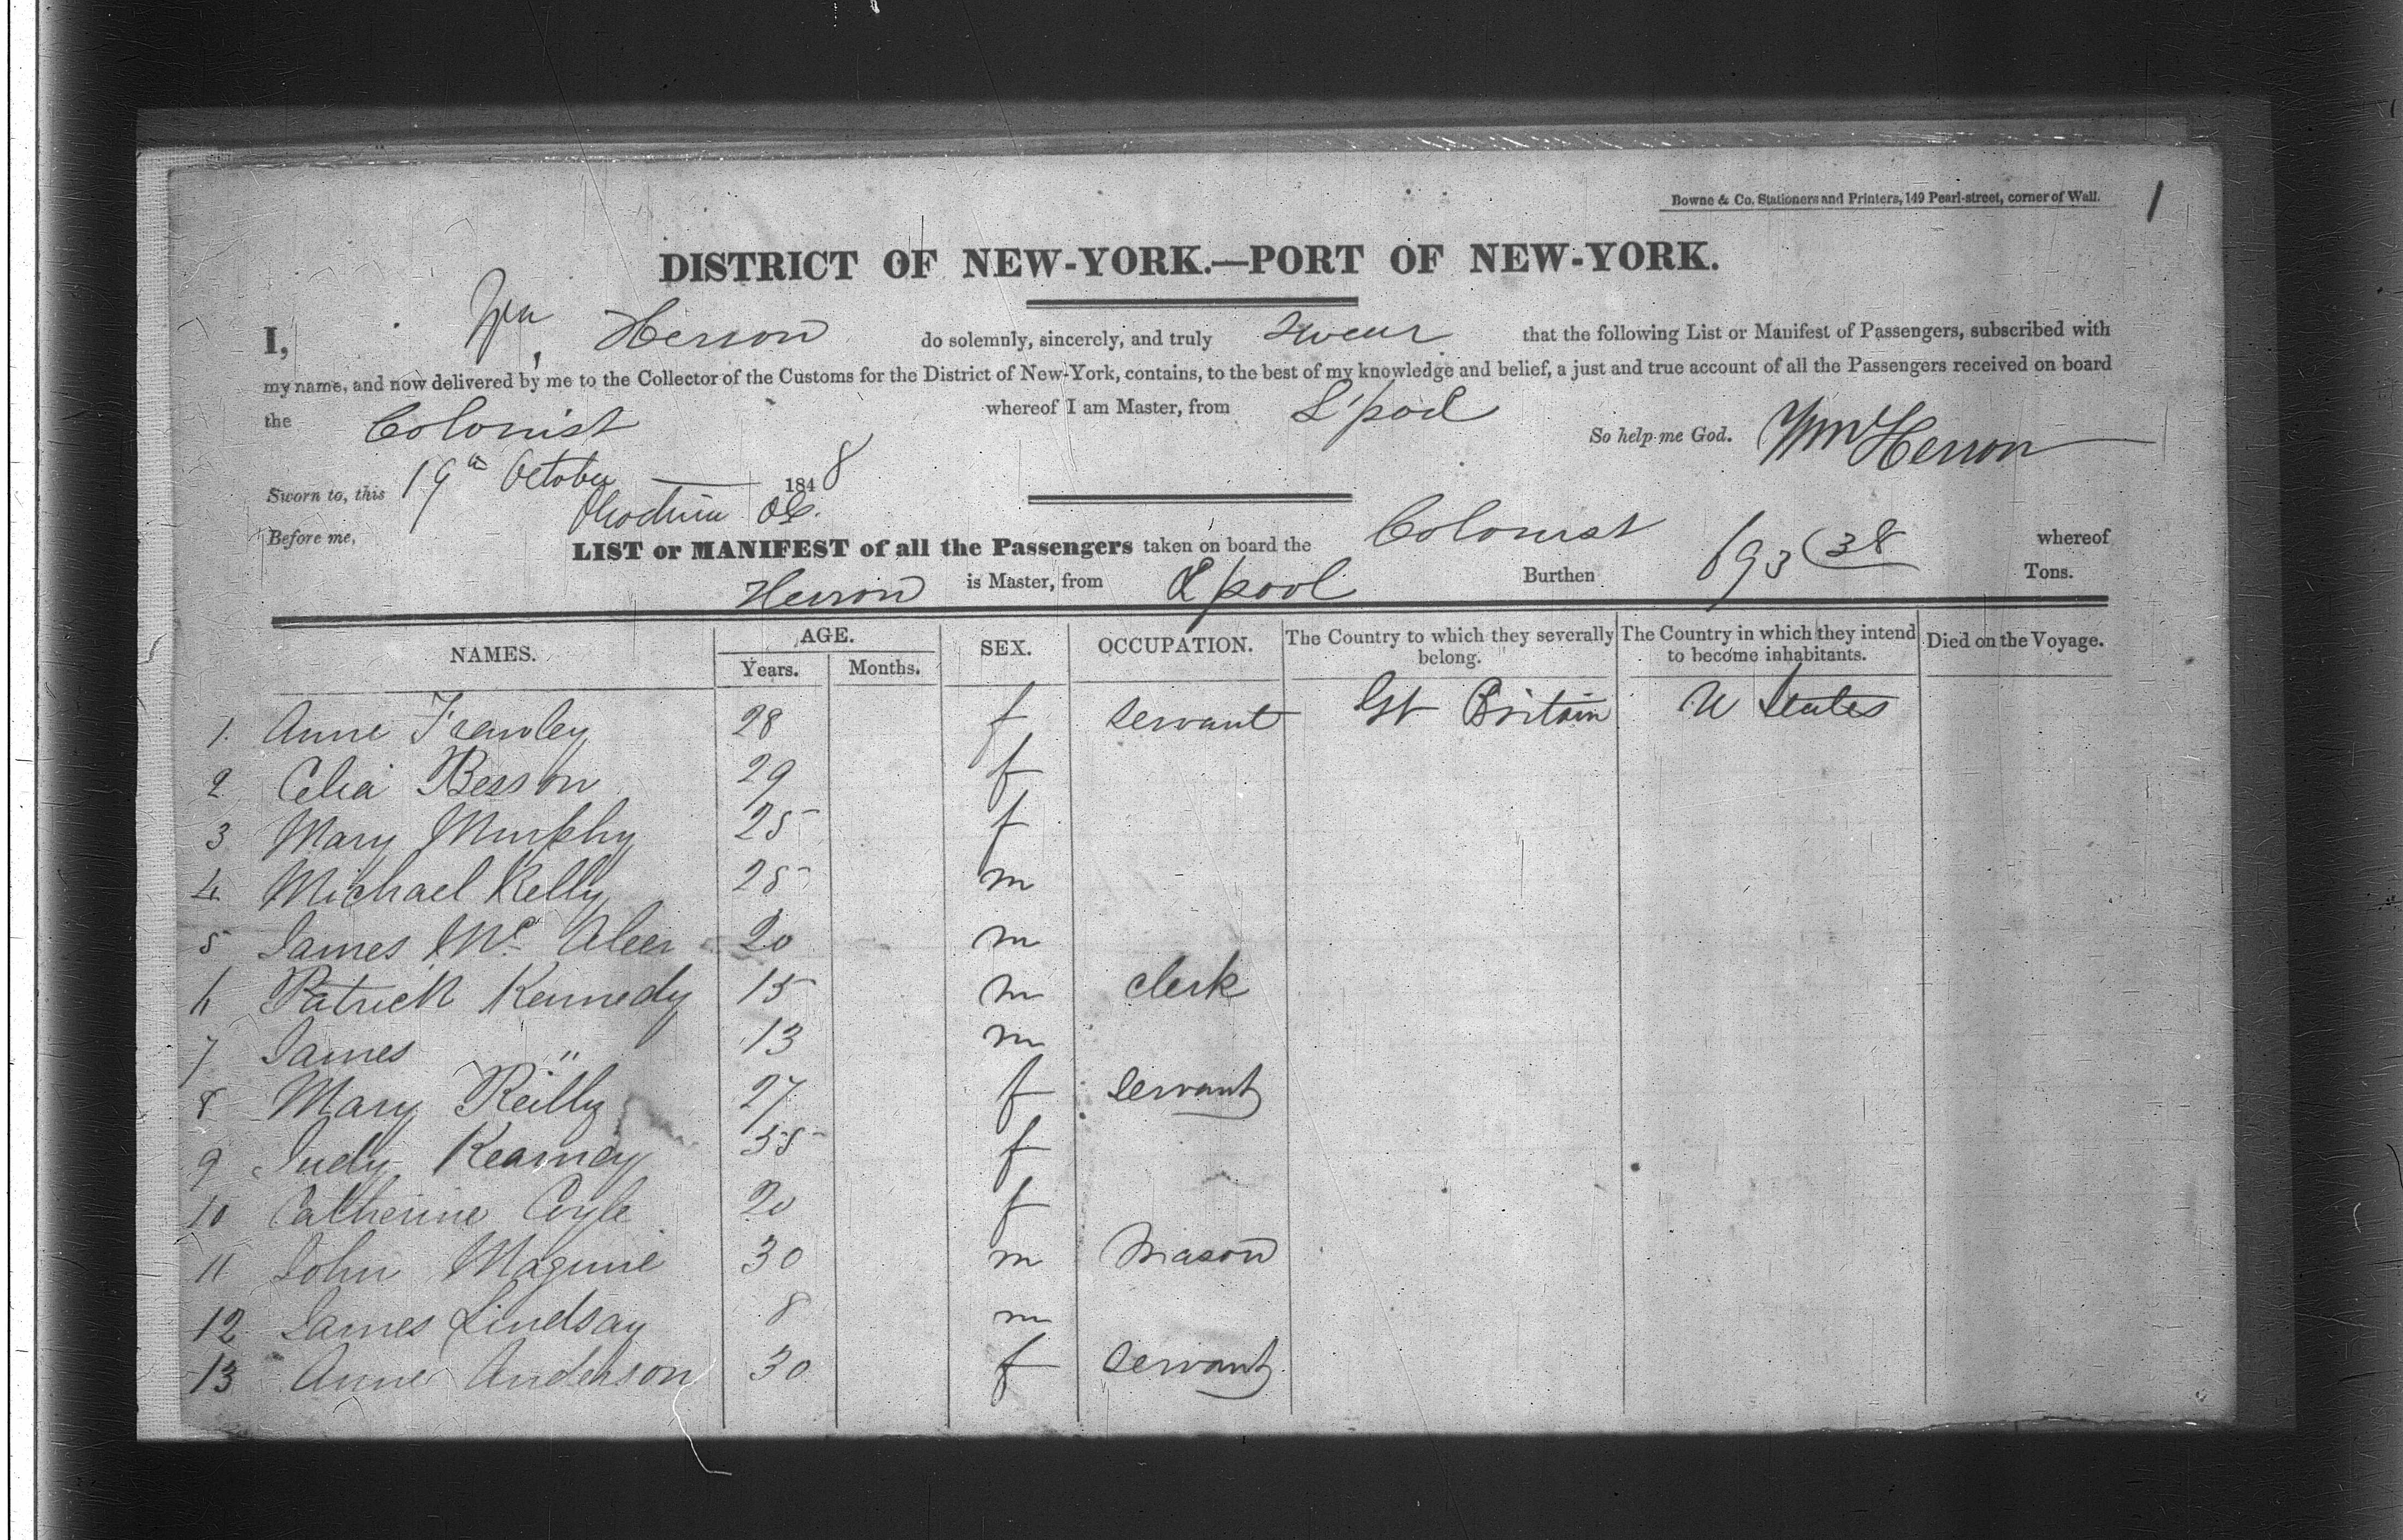 Bowne & Co. Stationers and Printers, 149 Pearl-street, corner of Wall.
1
DISTRICT OF NEW-YORK.—PORT OF NEW-YORK.
I, Wm Herron do solemnly, sincerely, and truly swear that the following List or Manifest of Passengers, subscribed with
my name, and now delivered by me to the Collector of the Customs for the District of New-York, contains, to the best of my knowledge and belief, a just and true account of all the Passengers received on board
the Colonist whereof I am Master, from L'pool
So help me God. Wm Herron
Sworn to, this 19th October 1848
Before me,
LIST or MANIFEST of all the Passengers taken on board the Colonist whereof
Herron is Master, from L'pool Burthen 693 38 Tons.
NAMES. AGE. Years. Months. SEX. OCCUPATION. The Country to which they severally belong. The Country in which they intend to become inhabitants. Died on the Voyage.
1. Anne Frawley 28 f servant Gt Britain U States
2 Celia Besson 29 f
3 Mary Murphy 25 f
4 Michael Kelly 25 m
5 James Mc Aleer 20 m
6 Patrick Kennedy 15 m clerk
7 James " 13 m
8 Mary Reilly 27 f servant
9 Judy Kearney 55 f
10 Catherine Coyle 20 f
11 John Maguire 30 m Mason
12 James Lindsay 8 m
13 Anne Anderson 30 f servant